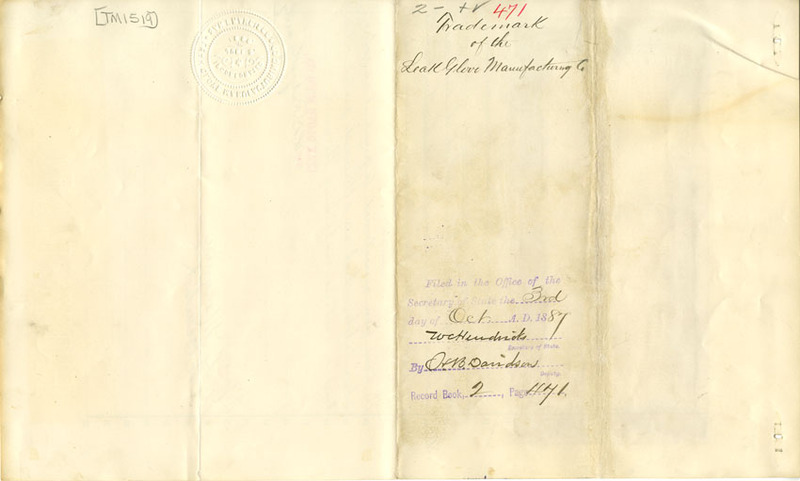 [TM1519]
2- 471
Trademark
of the
Leak Glove Manufacturing Co
Filed in the Office of the
Secretary of State the 3rd
day of Oct A.D. 1887
W C Hendricks
Secretary of State.
By Davidson
Deputy.
Record Book, 2, Page 471.